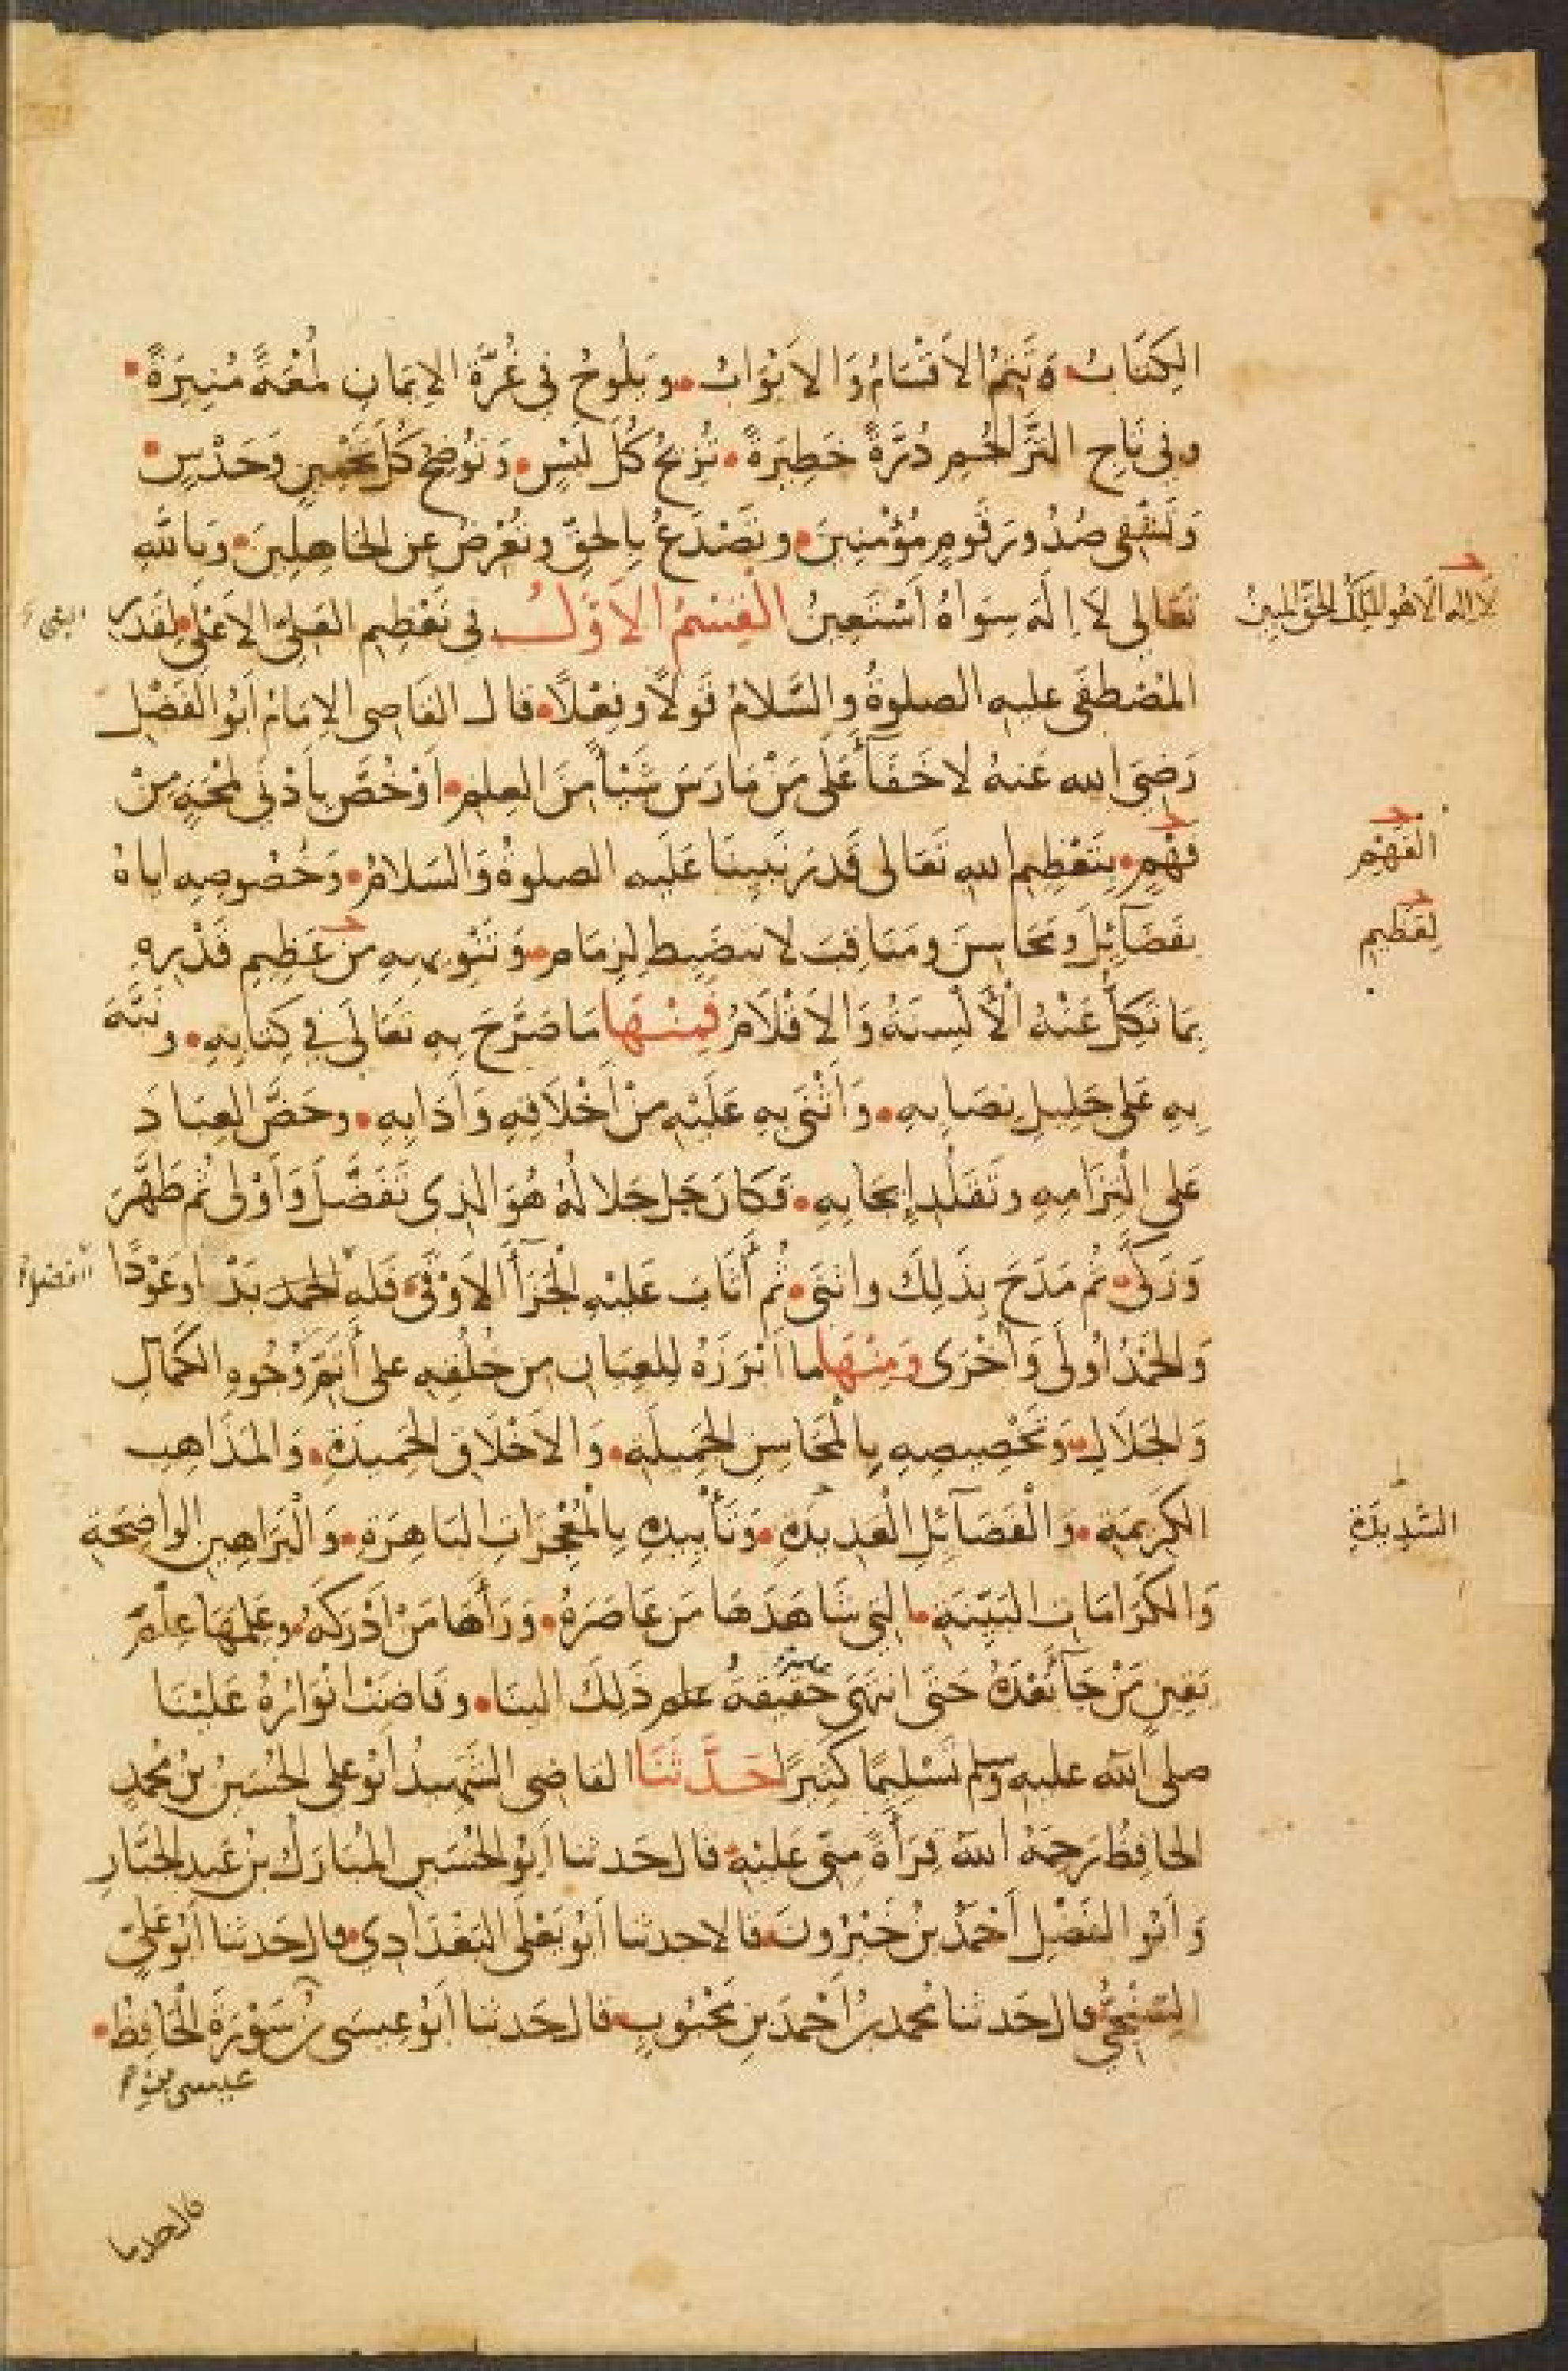 الكِتَابُ وَتَتِمُّ الأَقْسَامُ وَالأَبْوَابُ وَيَلُوحُ فِي غُرَّةِ الإِيمَانِ لُمْعَةً مُنِيرَةً
وفِي تَاجِ التَّرَاجُمِ دُرَّةً خَطِيرَةً تُزِيحُ كُلَّ لَبْسٍ وَتُوضِحُ كُلَّ تَخْمِينٍ وَحَدْسٍ
وَتَشْفِي صُدُورَ قَومٍ مُؤْمِنِينَ وتَصْدَعُ بِالحَقِّ وتُعْرِضُ عن الجَاهِلِينَ وَبِاللهِ
تَعَالى لَا إِلَهَ سِوَاهُ أَسْتَعِينُ القِسْمُ الأَوَّلُ فِي تَعْظِيمِ العَلِيِّ الأَعْلَى لِقَدْرِ
لَا إله الا هو الملك الحق المبين
النبي
المُصْطَفَى عليه الصلوةُ والسَّلامُ قَولًا وفِعْلًا قال القَاضِي الإِمَامُ أَبُو الفَضْلِ
رَضِيَ الله عَنهُ لا خَفَآءَ عَلَى مَنْ مَارَسَ شَيْأً مِنَ العِلمِ أَوْ خُصَّ بِأَدْنَى لَمْحَةٍ مِنْ
فَهْمٍ بِتَعْظِيمِ اللهِ تَعَالى قَدرَ نَبِيِّنَا عَلَيه الصلوةُ وَالسَّلَامُ وَخُصُوصِهِ إياهُ
الفَهْمِ
بِفَضَآئِلَ وَمَحَاسِنَ ومَنَاقِبَ لا تنضَبِطُ لِزِمَامٍ وَتَنْوِيهِهِ مِنْ عَظِيمِ قَدْرِهِ
لِعَظِيمِ
بِمَا تَكِلُّ عَنْهُ الأَلْسِنَةُ وَالأَقْلَامُ فَمِنْهَا مَا صَرَّحَ بِهِ تَعَالَى فِي كِتَابِهِ ونَبَّهَ
بِهِ عَلَى جَلِيلِ نِصَابِهِ وَأَثْنَى بِهِ عَلَيْهِ مِنْ أَخْلَاقِهِ وَآدَابِهِ وحَضَّ العِبَادَ
عَلَى الْتِزَامِهِ وتَقَلُّدِ إِيجَابِهِ فَكَانَ جَلَّ جَلَالُهُ هُوَ الذِي تَفَضَّلَ وَأَوْلَى ثُمَّ طَهَّرَ
وَزَكَّى ثُم مَدَحَ بِذَلِكَ وأثنَى ثُم أَثَابَ عَلَيْهِ الجَزَآءَ الأَوْفَى فَلَهُ الحمد بَدْءًا وعَوْدًا
الفضل
وَالحَمْدُ أُولَى وَأُخْرَى وَمِنْهَا ما أَبْرَزَهُ لِلعِيَانِ مِن خَلْقِهِ على أَتَمِّ وُجُوهِ الكَمَالِ
وَالجَلَالِ وَتَخْصِيصِهِ بِالمَحَاسِنِ الجَمِيلَةِ وَالأَخْلَاقِ الحَمِيدَةِ وَالمَذَاهِبِ
الكَرِيمَةِ وَالْفَضَآئِلِ الْعَدِيدَةِ وَتَأْيِيدِهِ بِالْمُعْجِزَاتِ البَاهِرَةِ وَالْبَرَاهِينِ الوَاضِحَةِ
السَّدِيدَةِ
وَالكَرَامَاتِ البَيِّنَةِ التي شَاهَدَهَا مَن عَاصَرَهُ وَرَأَهَا مَنْ أَدْرَكَهُ وعَلِمَهَا عِلْمَ
يَقِينٍ مَنْ جَآءَ بَعْدَهُ حَتى انتَهَى حَقِيقَةُ علمِ ذَلِكَ الينَا وفَاضَتْ أَنْوَارُهُ عَلَيْنَا
صلى الله عليه وسلم تَسْلِيمًا كَثِيرًا حَدَّثَنَا القاضِي الشَّهِيدُ أَبُو علي الحُسَيْنُ بْنُ مُحمدٍ
الحَافِظُ رَحِمَهُ اللهُ قِرَأَةً مِنِّي عَلَيْهِ قَالَ حَدثنا أَبُو الحُسَينِ المُبَارَكُ بْنُ عَبدِ الجَبَّارِ
وَأَبُو الفَضْلِ أَحْمَدُ بْنُ خَيْرُونَ قَالا حدثنا أَبُو يَعْلَى البَغْدَادِي قالَ حَدثنا أَبُو عَلِيٍّ
السِّنْجِيُّ قالَ حَدثنا مُحمد بنُ أَحْمَدَ بنِ مَحْبُوبٍ قَالَ حَدثنا أَبُو عِيسَى بْنُ سَوْرَةَ الْحَافِظُ
عيسى بن
قال حدثنا